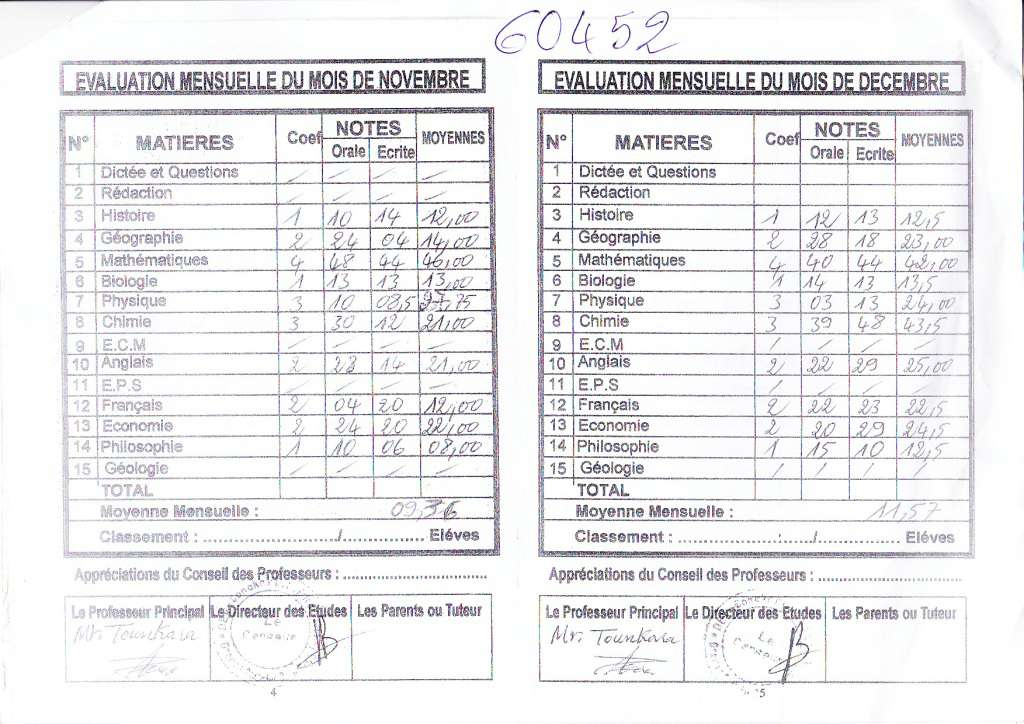 60452
EVALUATION MENSUELLE DU MOIS DE NOVEMBRE
N° MATIERES Coef NOTES Orale Ecrite MOYENNES
1 Dictée et Questions / / / /
2 Rédaction / / / /
3 Histoire 1 10 14 12,00
4 Géographie 2 24 04 14,00
5 Mathématiques 4 48 44 46,00
6 Biologie 1 13 13 13,00
7 Physique 3 10 08,5
8 Chimie 3 30 12 21,00
9 E.C.M / / / /
10 Anglais 2 28 14 21,00
11 E.P.S / / / /
12 Français 2 04 20 12,00
13 Economie 2 24 20 22,00
14 Philosophie 1 10 06 08,00
15 Géologie / / / /
TOTAL
Moyenne Mensuelle : 09,36
Classement : ......................./................... Eléves
Appréciations du Conseil des Professeurs : ...........................
Le Professeur Principal Le Directeur des Etudes Les Parents ou Tuteur
Mr. Tounkara
Le Censeur
4
EVALUATION MENSUELLE DU MOIS DE DECEMBRE
N° MATIERES Coef NOTES Orale Ecrite MOYENNES
1 Dictée et Questions
2 Rédaction
3 Histoire 1 12 13 12,5
4 Géographie 2 28 18 23,00
5 Mathématiques 4 40 44 42,00
6 Biologie 1 14 13 13,5
7 Physique 3 03 13 24,00
8 Chimie 3 39 48 43,5
9 E.C.M / / / /
10 Anglais 2 22 29 25,00
11 E.P.S / / / /
12 Français 2 22 23 22,5
13 Economie 2 20 29 24,5
14 Philosophie 1 15 10 12,5
15 Géologie / / / /
TOTAL
Moyenne Mensuelle : 11,57
Classement : ......................./................... Eléves
Appréciations du Conseil des Professeurs : ...........................
Le Professeur Principal Le Directeur des Etudes Les Parents ou Tuteur
Mr. Tounkara
Le Censeur
5